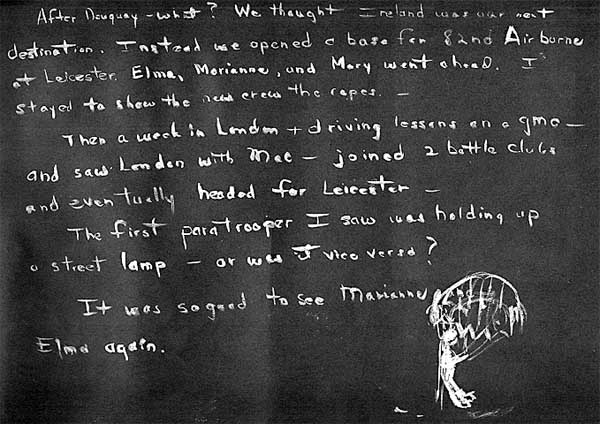 After Douquay - what? We thought Ireland was our next
destination. Instead we opened a base for 82nd Airborne
at Leicester. Elma, Marianne, and Mary went ahead. I
stayed to show the new crew the ropes. —
Then a week in London + driving lessons on a gmc —
and saw London with Mac — joined 2 bottle clubs
and eventually headed for Leicester —
The first paratrooper I saw was holding up
a street lamp — or was it vice versa?
It was so good to see Marianne
Elma again.